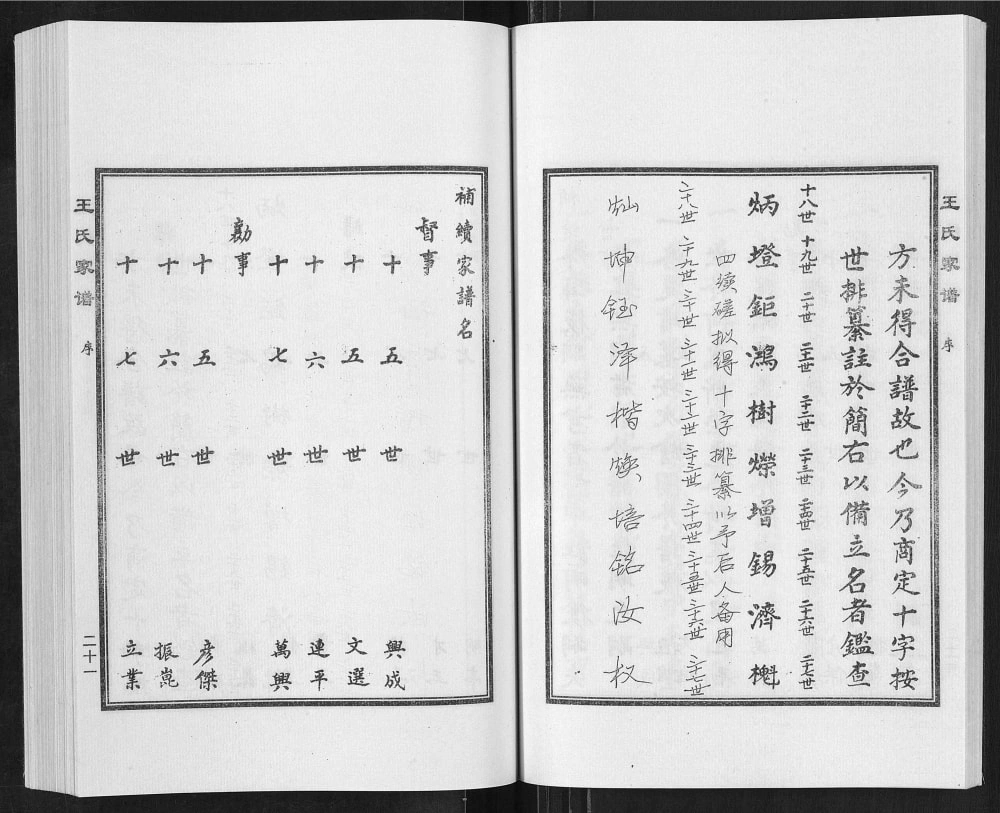 王氏家谱
序
方未得合譜故也今乃商定十字按
世排纂註於簡右以備立名者鑑查
十八世 十九世 二十世 二十一世 二十二世 二十三世 二十四世 二十五世 二十六世 二十七世
炳墱鉅鴻樹爍增錫濟槲
四续磋拟得十字排纂以予后人备用
二十八世 二十九世 三十世 三十一世 三十二世 三十三世 三十四世 三十五世 三十六世 三十七世
灿坤钰泽楷焕培铭汝权
補續家譜名
督事
十五世 興成
十五世 文選
十六世 連平
十七世 萬興
勷事
十五世 彦傑
十六世 振崑
十七世 立業
王氏家谱
序
二十一